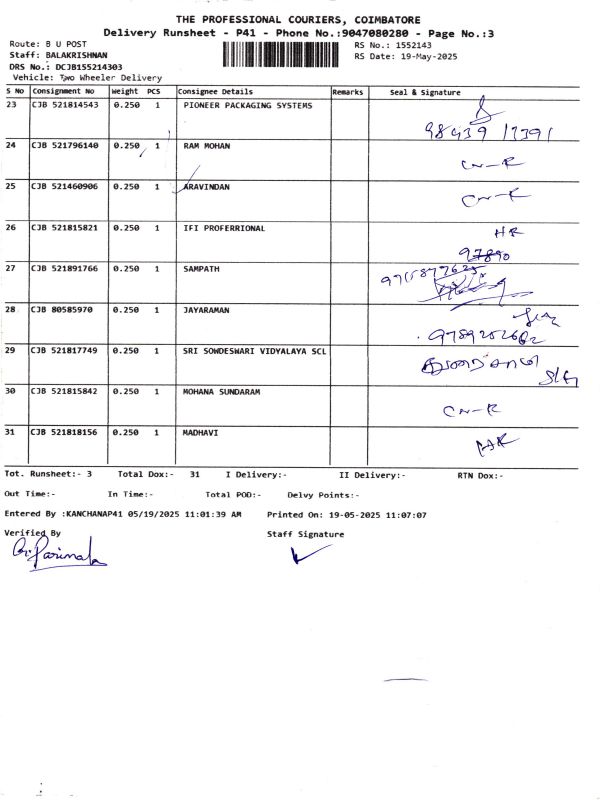 THE PROFESSIONAL COURIERS, COIMBATORE
Delivery Runsheet - P41 - Phone No.:9047080280 - Page No.:3
Route: B U POST
RS No.: 1552143
Staff: BALAKRISHNAN
RS Date: 19-May-2025
DRS No.: DCJB155214303
Vehicle: Two Wheeler Delivery
S No Consignment No Weight PCS Consignee Details Remarks Seal & Signature
23 CJB 521814543 0.250 1 PIONEER PACKAGING SYSTEMS
98439 17391
24 CJB 521796140 0.250 1 RAM MOHAN
CN-R
25 CJB 521460906 0.250 1 ARAVINDAN
CN-R
26 CJB 521815821 0.250 1 IFI PROFERRIONAL
HR
97890
27 CJB 521891766 0.250 1 SAMPATH
28 CJB 80585970 1 0.250 1 JAYARAMAN
29 CJB 521817749 0.250 1 SRI SOWDESWARI VIDYALAYA SCL
30 CJB 521815842 0.250 1 MOHANA SUNDARAM
CN-R
31 CJB 521818156 0.250 1 MADHAVI
Tot. Runsheet:- 3 Total Dox:- 31 I Delivery:- II Delivery:- RTN Dox:-
Out Time:- In Time:- Total POD:- Delvy Points:-
Entered By :KANCHANAP41 05/19/2025 11:01:39 AM Printed On: 19-05-2025 11:07:07
Verified By Staff Signature
G. Parimala